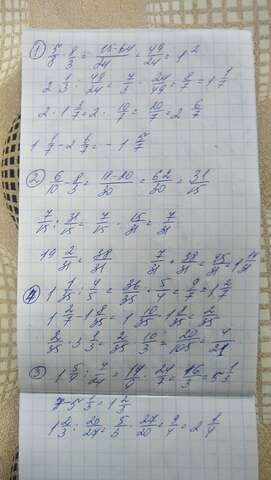 1) 5/8 - 8/3 = (15-64)/24 = 49/24 = 1 2
2 1/3 : 49/24 = 7/3 · 24/49 = 8/7 = 1 1/7
2 · 1 3/7 = 2 · 10/7 = 10/7 = 2 6/7
1 1/7 - 2 6/7 = -1 5/7
2) 6/10 - 8/3 = 62/30 = 31/15
7/15 : 31/15 = 7/15 · 15/31 = 7/31
19 2/31 = 38/31
7/31 + 38/31 = 45/31 = 1 14/31
4) 1 1/35 : 4/5 = 36/35 · 5/4 = 9/7 = 1 2/7
1 2/7 - 1 8/35 = 1 10/35 - 1 8/35 = 2/35
2/35 · 3 1/3 = 2/35 · 10/3 = 20/105 = 4/21
3) 1 5/4 : 7/24 = 14/4 · 24/7 = 16/3 = 5 1/3
7 - 5 1/3 = 1 2/3
1 2/3 : 20/27 = 5/3 · 27/20 = 9/4 = 2 1/4